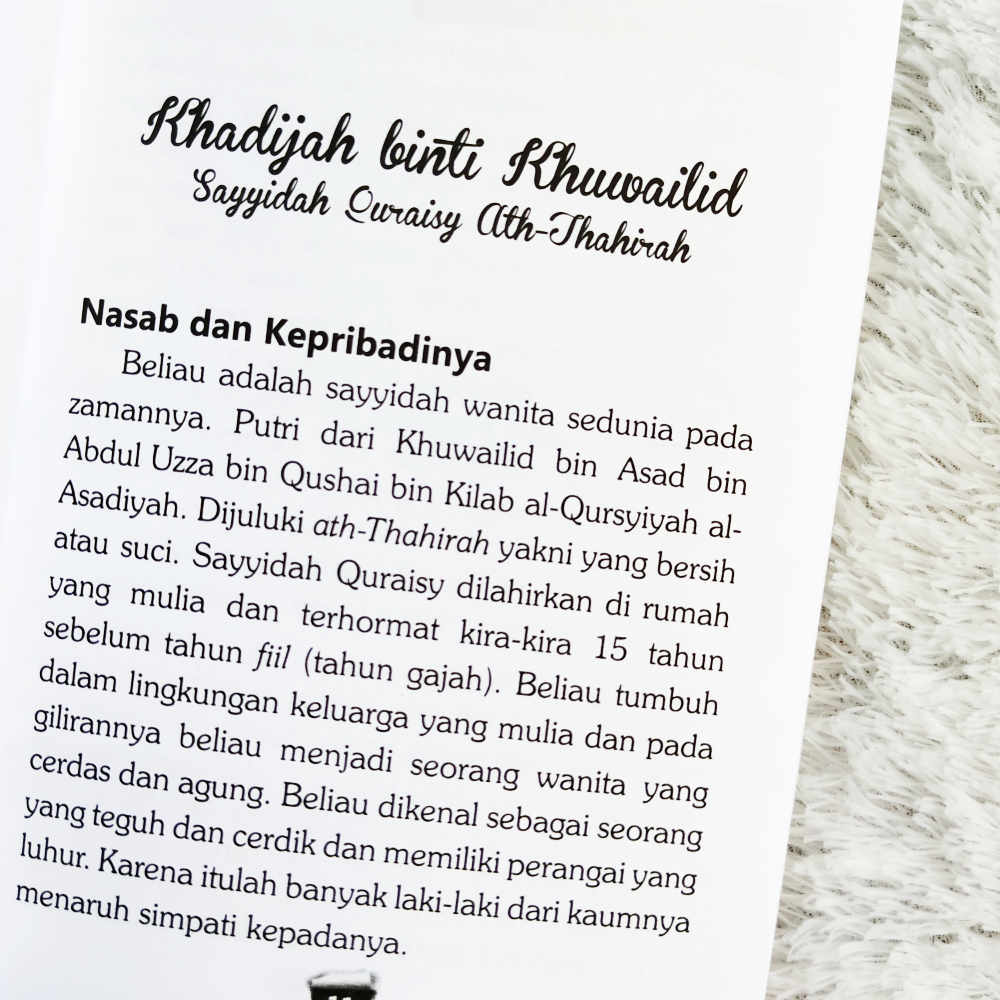 Khadijah binti Khuwailid
Sayyidah Quraisy Ath-Thahirah
Nasab dan Kepribadinya
Beliau adalah sayyidah wanita sedunia pada
zamannya. Putri dari Khuwailid bin Asad bin
Abdul Uzza bin Qushai bin Kilab al-Qursyiyah al-
Asadiyah. Dijuluki ath-Thahirah yakni yang bersih
atau suci. Sayyidah Quraisy dilahirkan di rumah
yang mulia dan terhormat kira-kira 15 tahun
sebelum tahun fiil (tahun gajah). Beliau tumbuh
dalam lingkungan keluarga yang mulia dan pada
gilirannya beliau menjadi seorang wanita yang
cerdas dan agung. Beliau dikenal sebagai seorang
yang teguh dan cerdik dan memiliki perangai yang
luhur. Karena itulah banyak laki-laki dari kaumnya
menaruh simpati kepadanya.